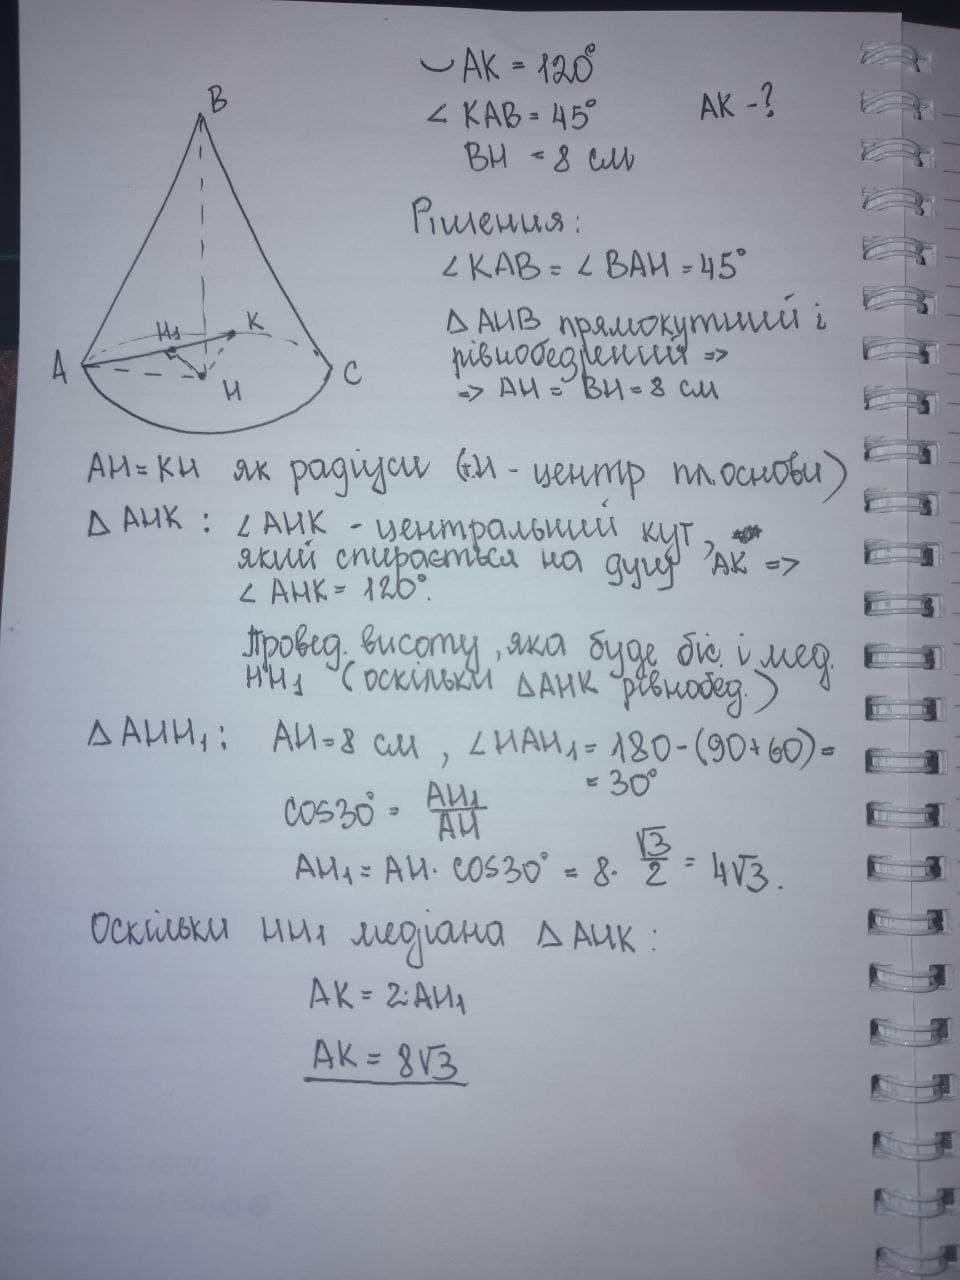 B
A
H₁
K
H
C
◡ AK = 120°
∠ KAB = 45°
AK - ?
BH = 8 см
Рішення:
∠KAB = ∠BAH = 45°
△ AHB прямокутний і
рівнобедрений =>
=> AH = BH = 8 см
AH = KH як радіуси (т.H - центр пл. основи)
△ AHK : ∠AHK - центральний кут,
який спирається на дугу AK =>
∠ AHK = 120°.
Провед. висоту, яка буде біс. і мед.
HH₁ (оскільки △AHK рівнобед.)
△ AHH₁ : AH = 8 см, ∠HAH₁ = 180-(90+60) =
= 30°
cos30° = AH₁/AH
AH₁ = AH · cos30° = 8 · √3/2 = 4√3.
Оскільки HH₁ медіана △ AHK :
AK = 2·AH₁
AK = 8√3